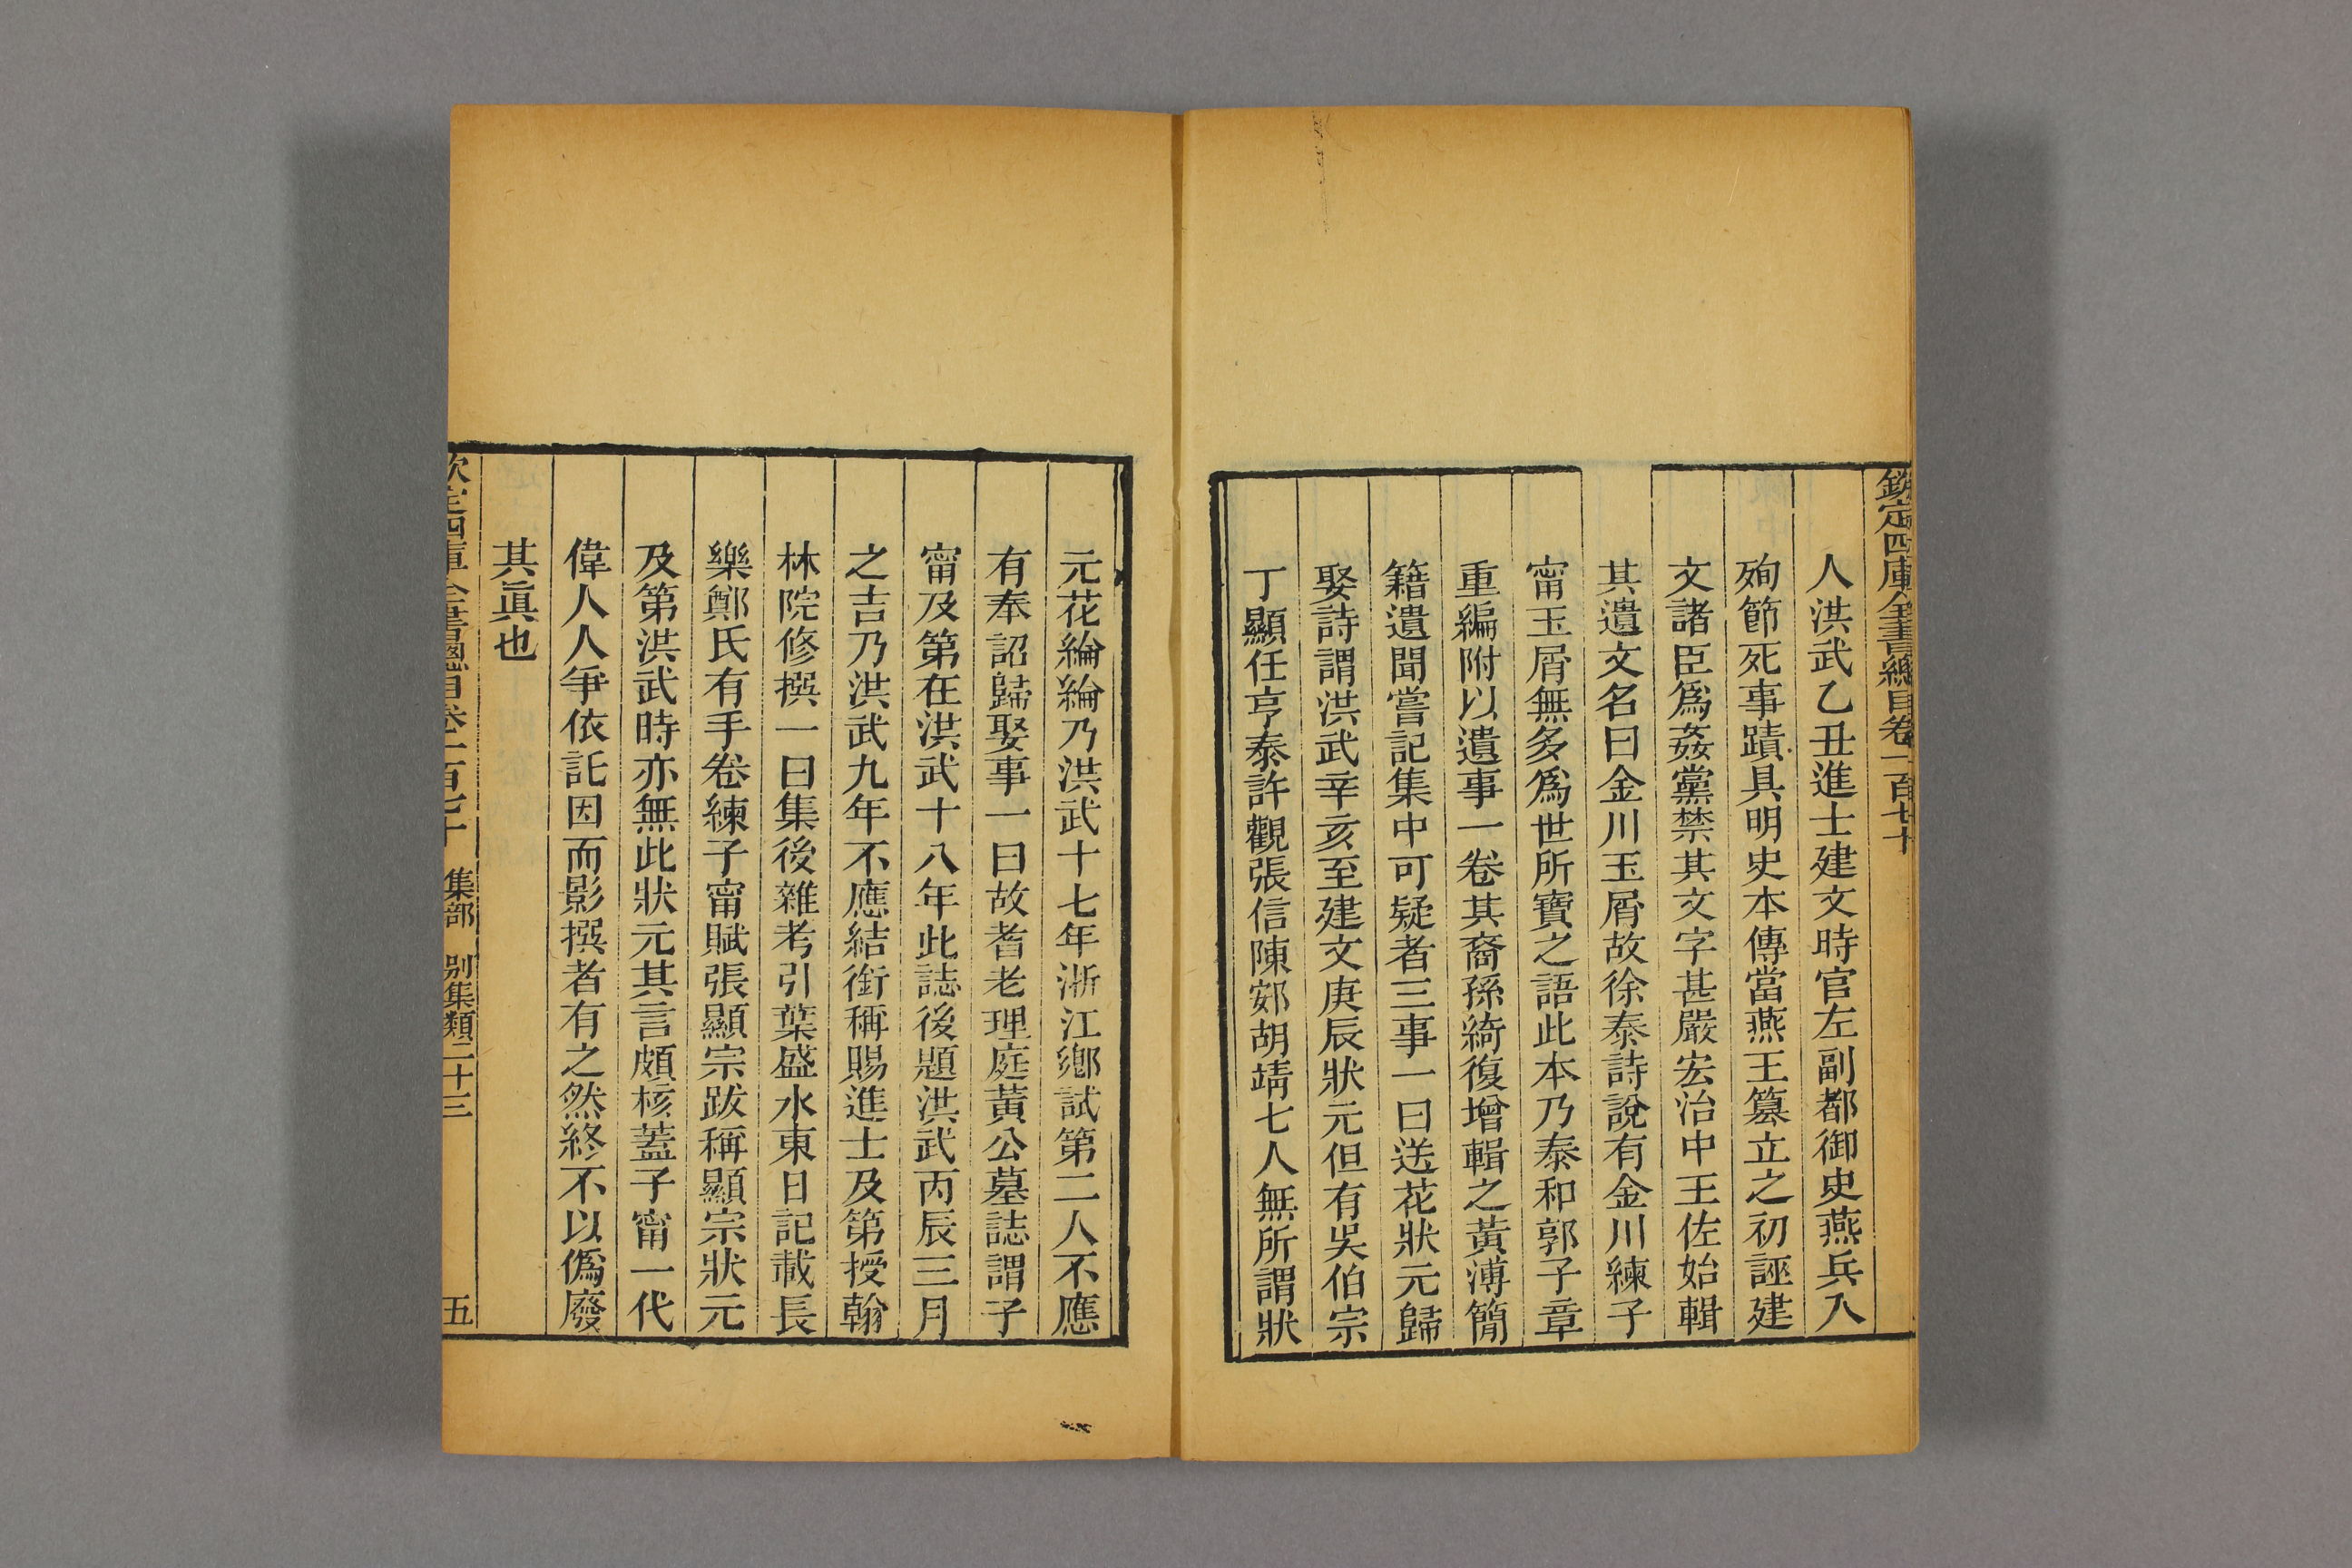 欽定四庫全書總目卷一百七十
人洪武乙丑進士建文時官左副都御史燕兵入
殉節死事蹟具明史本傳當燕王簒立之初誣建
文諸臣爲姦黨禁其文字甚嚴宏治中王佐始輯
其遺文名曰金川玉屑故徐泰詩說有金川練子
甯玉屑無多爲世所寶之語此本乃泰和郭子章
重編附以遺事一卷其裔孫綺復增輯之黃溥簡
籍遺聞嘗記集中可疑者三事一曰送花狀元歸
娶詩謂洪武辛亥至建文庚辰狀元但有吳伯宗
丁顯任亨泰許觀張信陳䢿胡靖七人無所謂狀
元花綸綸乃洪武十七年浙江鄉試第二人不應
有奉詔歸娶事一曰故耆老理庭黃公墓誌謂子
甯及第在洪武十八年此誌後題洪武丙辰三月
之吉乃洪武九年不應結銜稱賜進士及第授翰
林院修撰一曰集後雜考引葉盛水東日記載長
樂鄭氏有手卷練子甯賦張顯宗跋稱顯宗狀元
及第洪武時亦無此狀元其言頗核蓋子甯一代
偉人人爭依託因而影撰者有之然終不以僞廢
其眞也
欽定四庫全書總目卷一百七十　集部　别集類二十三　五